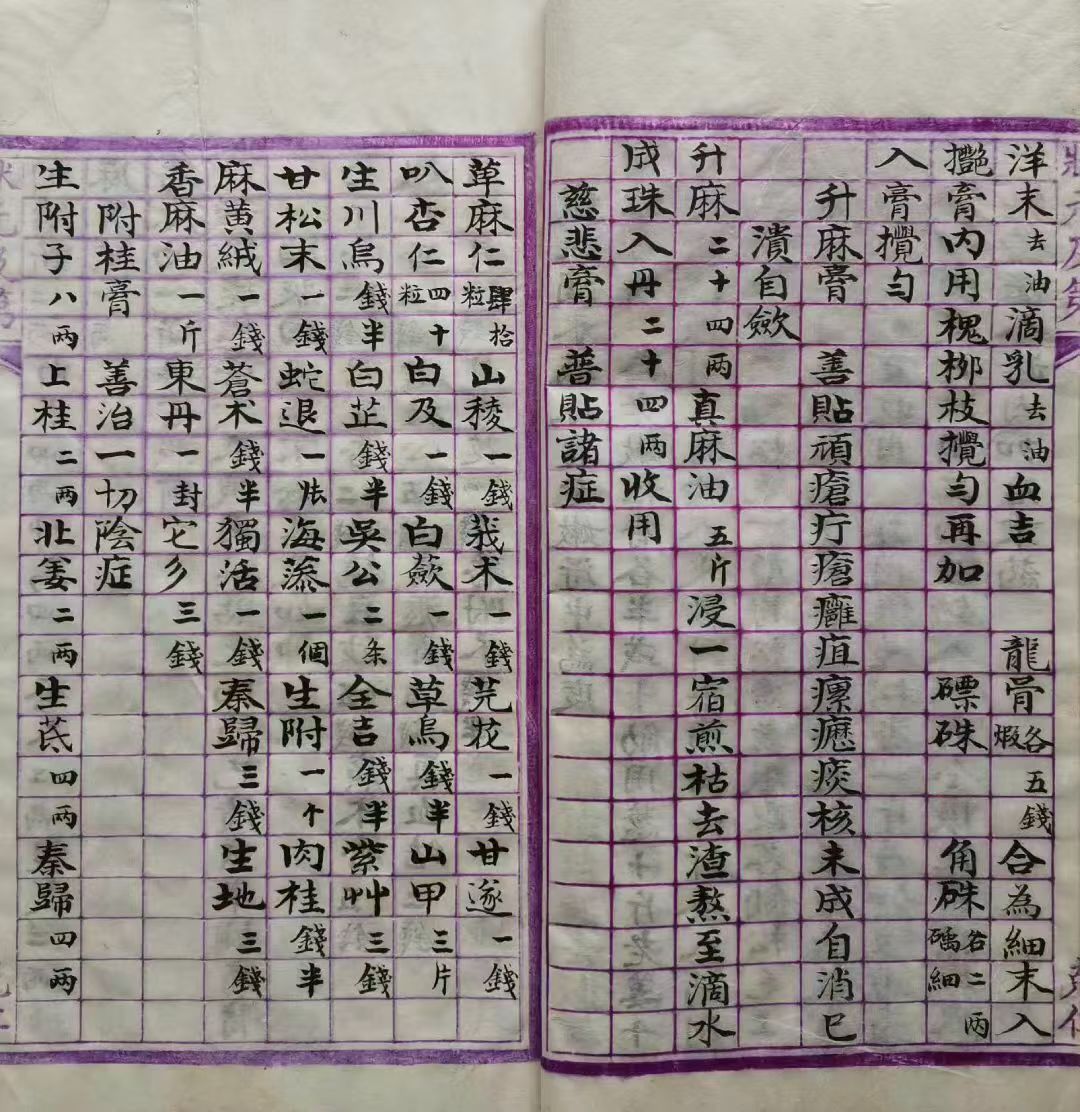 洋末去油滴乳去油血吉龍骨煆各五錢合為細末入
攪膏內用槐柳枝攪勻再加磦硃角硃碼各二兩細
入膏攪勻
升麻膏善貼頑瘡疔瘡癰疽瘰癧痰核未成自消已
潰自歛
升麻二十四兩真麻油五斤浸一宿煎枯去渣熬至滴水
成珠入丹二十四兩收用
慈悲膏普貼諸症
草麻仁肆拾粒山稜一錢莪术一錢芫花一錢甘遂一錢
叭杏仁四十粒白及一錢白歛一錢草烏錢半山甲三片
生川烏錢半白芷錢半吳公二条全吉錢半紫艸三錢
甘松末一錢蛇退一怯海蔆一個生附一个肉桂錢半
麻黃絨一錢蒼术錢半獨活一錢秦歸三錢生地三錢
香麻油一斤東丹一封它乡三錢
附桂膏善治一切陰症
生附子八兩上桂二兩北姜二兩生茋四兩秦歸四兩